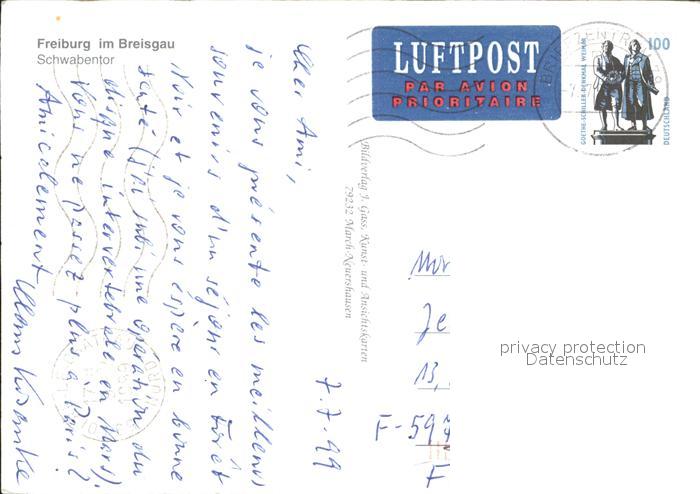 Freiburg im Breisgau
Schwabentor
LUFTPOST
PAR AVION
PRIORITAIRE
100
GOETHE-SCHILLER-DENKMAL WEIMAR
DEUTSCHLAND
BRIEFZENTRUM
7.7.99
Cher Ami,
je vous présente les meilleurs
souvenirs d'un séjour en Forêt
Noir et je vous espère en bonne
santé (J'ai subi une opération du
disque intervertébrale en Mars).
Vous ne passez plus à Paris?
Amicalement
Bildverlag J. Gass, Kunst- und Ansichtskarten
79232 March-Neuershausen
Mon
Je
13,
F-59
F
privacy protection
Datenschutz